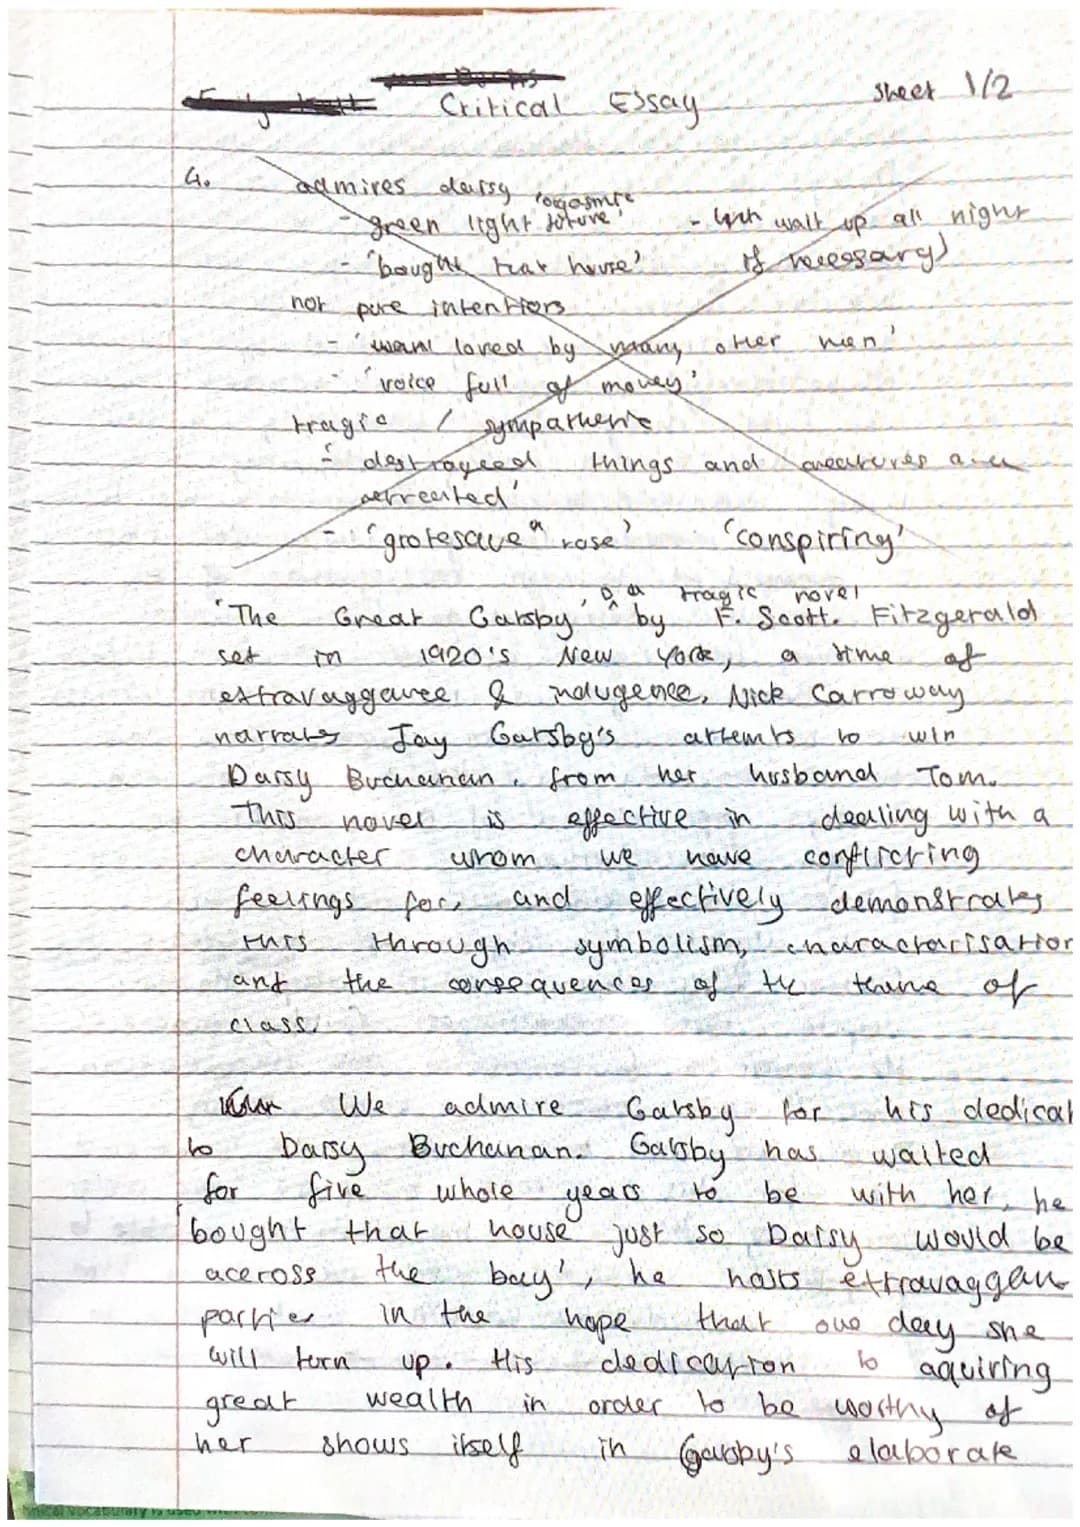 Critical Essay
sheet 1/2
4. admires daisy
- green light 'orgasmic future' - 'wait up all night
- 'bought that house' if necessary)
not pure intentions
- 'want loved by many other men'
- 'voice full of money'
tragic / sympathetic
- destroyeed things and creatures and
retreated'
- 'grotesque a rose' 'conspiring'
'The Great Gatsby', is a tragic novel by F. Scott. Fitzgerald
set in 1920's New York, a time of
extravaggance & indugence, Nick Carroway
narrates Jay Gatsby's attemts to win
Daisy Buchanan, from her husband Tom.
This novel is effective in dealing with a
character whom we have conflicting
feelings for, and effectively demonstrates
this through symbolism, characterisation
and the consequences of the theme of
class.
We admire Gatsby for his dedicat
to Daisy Buchanan. Gatsby has waited
for five whole years to be with her, he
'bought that house just so Daisy would be
aceross the bay', he hosts extravaggan
parties in the hope that one day she
will turn up. His dedication to aquiring
great wealth in order to be worthy of
her shows itself in Gatsby's elaborate